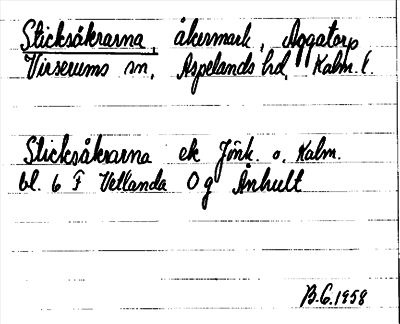 Sticksåkrarna, åkermark, Aggatorp
Virserums sn, Aspelands hd, Kalm. l.
Sticksåkrarna ek Jönk. o. Kalm.
bl. 6 F Vetlanda Og Århult
B.G. 1958